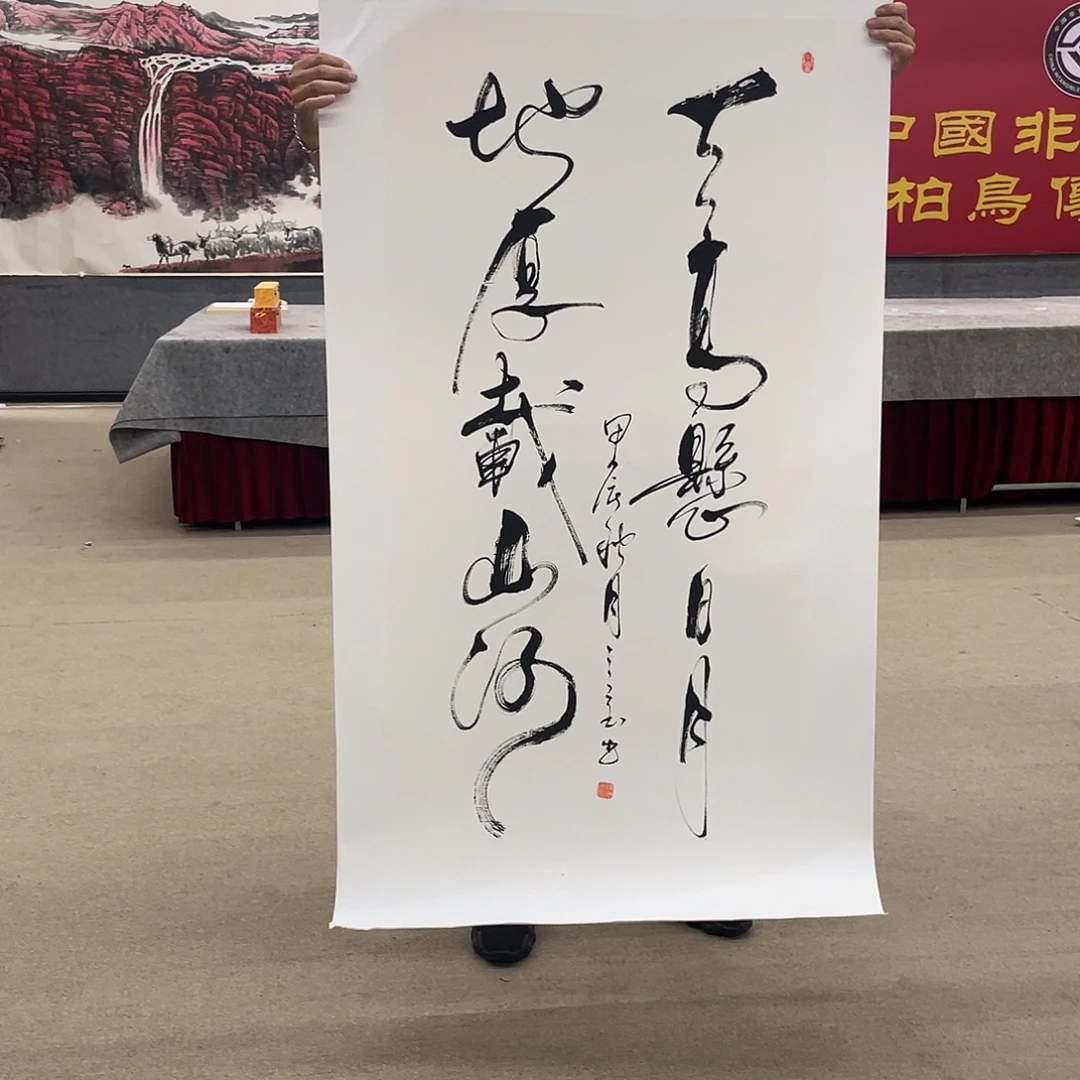 天高懸日月
地厚載山河
甲辰秋月
中國非
柏鳥傳